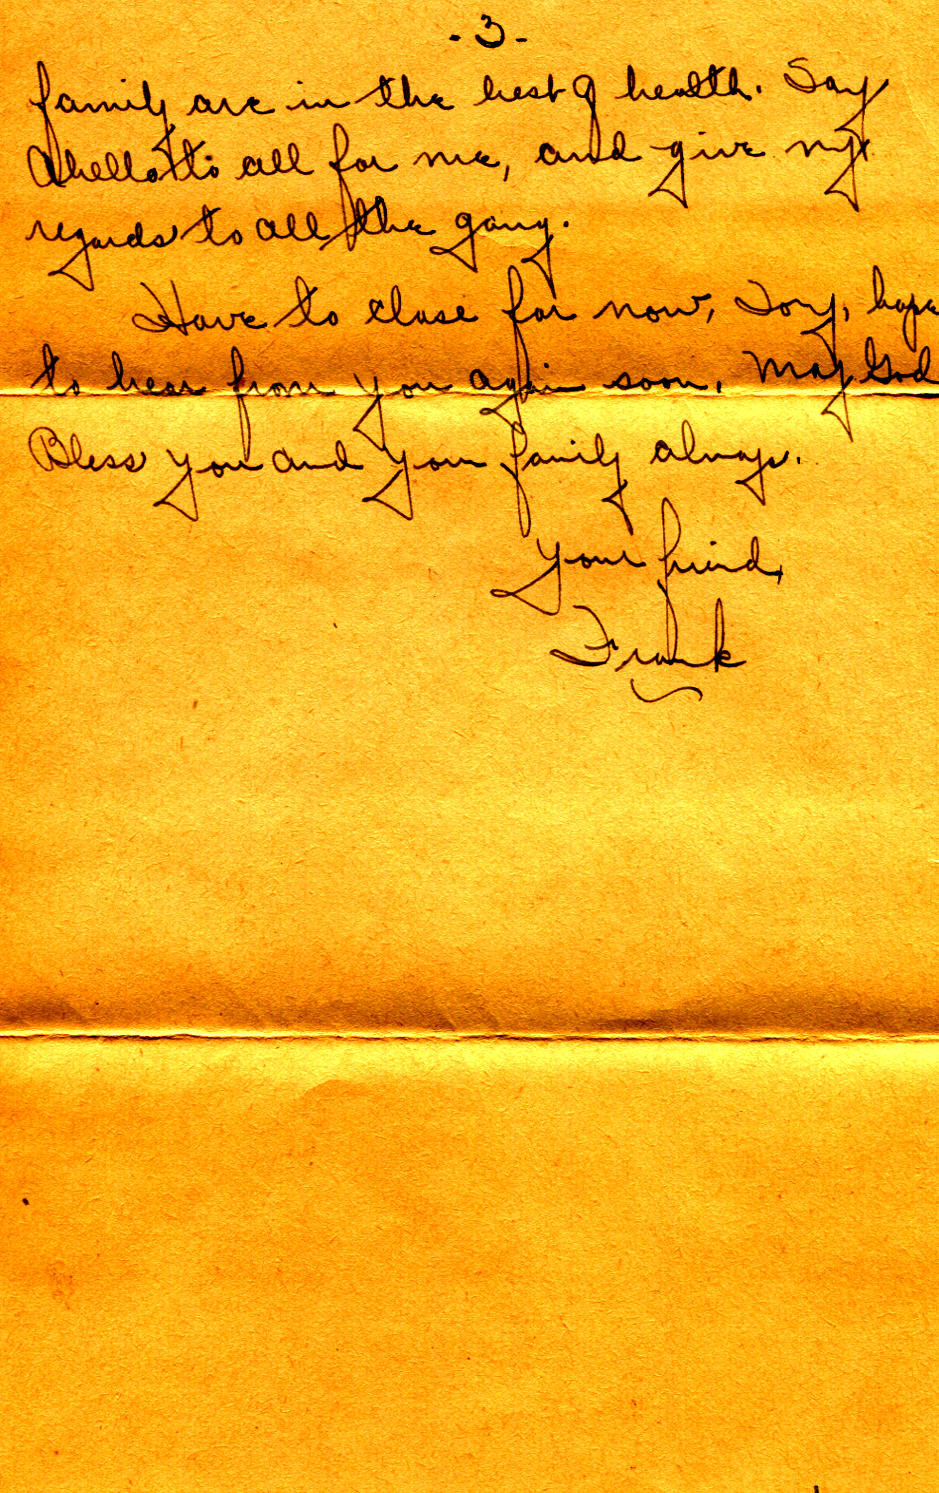 - 3 -
family are in the best of health. Say
a hello to all for me, and give my
regards to all the gang.
Have to close for now, Tony, hope
to hear from you again soon. May God
Bless you and your family always.
Your friend,
Frank